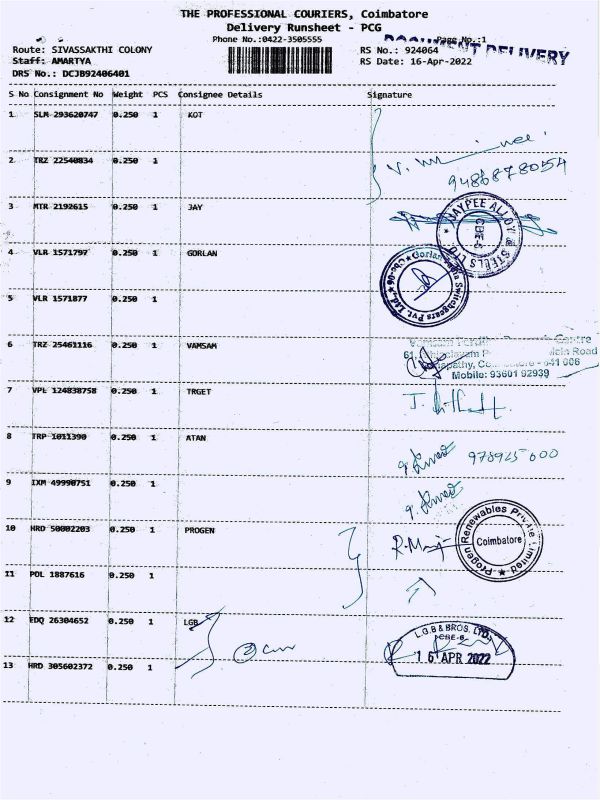 THE PROFESSIONAL COURIERS, Coimbatore
Delivery Runsheet - PCG
Phone No.:0422-3505555
Page No.:1
DOCUMENT DELIVERY
Route: SIVASSAKTHI COLONY
RS No.: 924064
Staff: AMARTYA
RS Date: 16-Apr-2022
DRS No.: DCJB92406401
S No Consignment No Weight PCS Consignee Details Signature
1 SLM 293620747 0.250 1 KOT
2 TRZ 22540834 0.250 1
9486878054
3 MTR 2192615 0.250 1 JAY
JAYPEE ALLOY & STEELS LTD CBE-6
4 VLR 1571797 0.250 1 GORLAN
Gorlan Switchgears Pvt. Ltd. Cbe-06
5 VLR 1571877 0.250 1
6 TRZ 25461116 0.250 1 VAMSAM
Centre
61, Main Road
641 006
Mobile: 93601 92939
7 VPL 124838758 0.250 1 TRGET
8 TRP 1011390 0.250 1 ATAN
9 IXM 49990751 0.250 1
10 HRD 50002203 0.250 1 PROGEN
Progen Renewables Private Limited Coimbatore
11 POL 1887616 0.250 1
12 EDQ 26304652 0.250 1 LGB
L.G.B & BROS. LTD.,
CBE-6
16 APR 2022
13 HRD 305602372 0.250 1